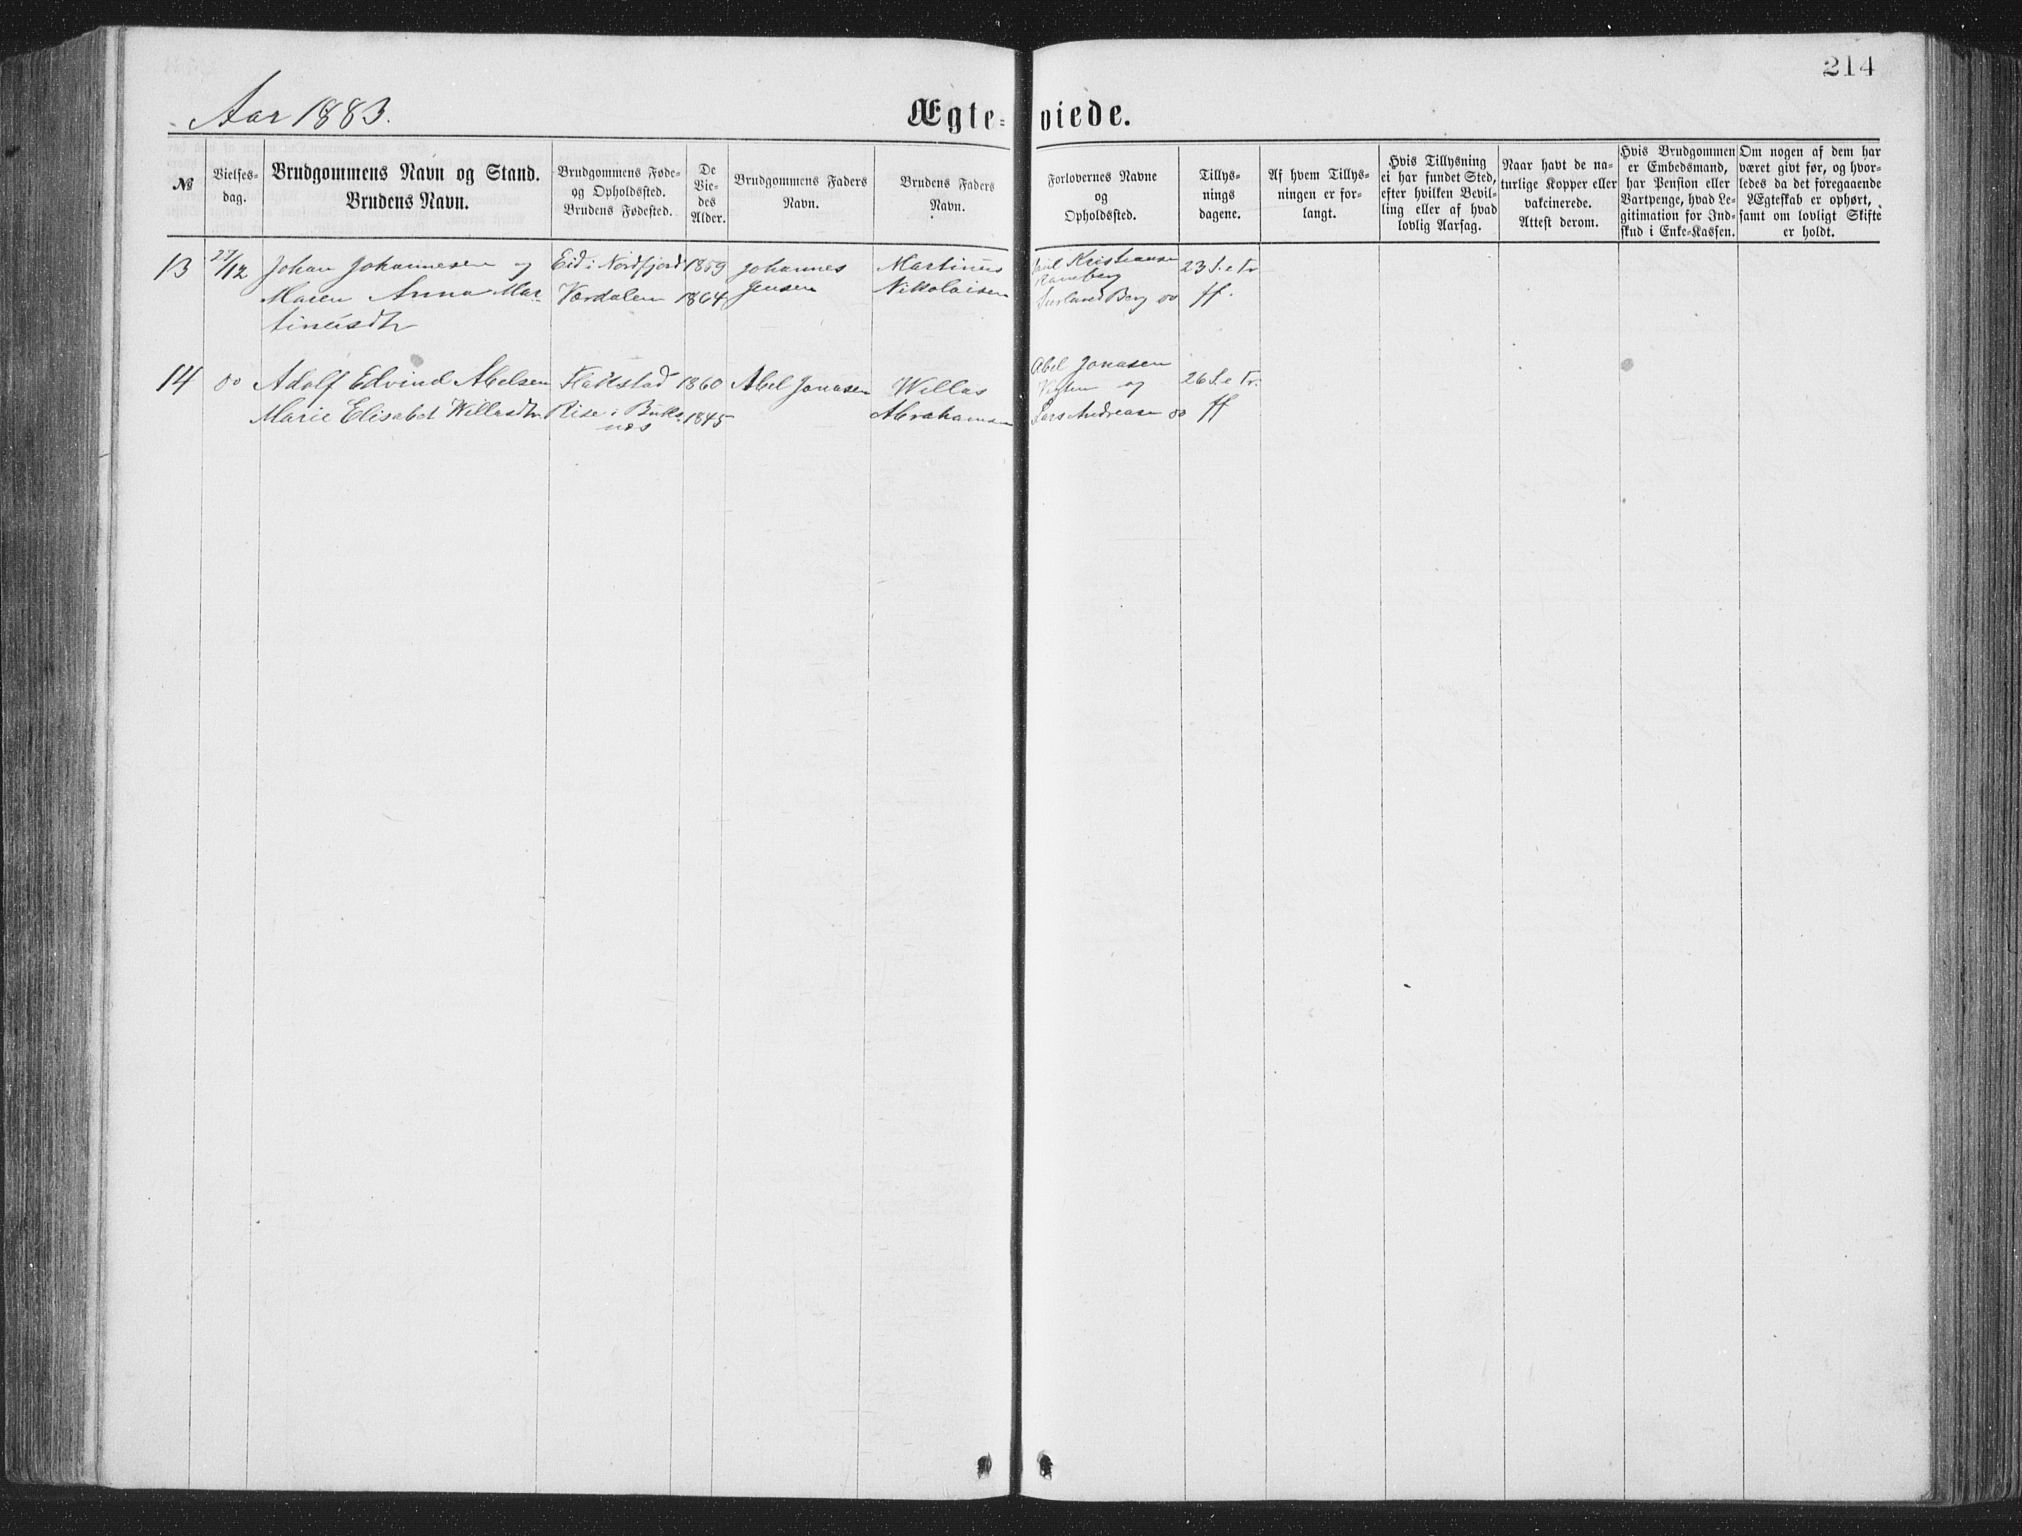 214
Aar 1883.
Ægte=
viede.
№
Vielses-
dag.
Brudgommens Navn og Stand.
Brudens Navn.
Brudgommens Føde-
og Opholdsted.
Brudens Fødested.
De
Vie-
des
Alder.
Brudgommens Faders
Navn.
Brudens Faders
Navn.
Forlovernes Navne
og
Opholdssted.
Tillys-
nings
dagene.
Af hvem Tillys-
ningen er for-
langt.
Hvis Tillysning
ei har fundet Sted,
efter hvilken Bevil-
ling eller af hvad
lovlig Aarsag.
Naar havt de na-
turlige Kopper eller
vakcinerede.
Attest derom.
Hvis Brudgommen
er Embedsmand,
har Pension eller
Vartpenge, hvad Le-
gitimation for Ind-
skud i Enke-Kassen.
Om nogen af dem har
været givt før, og hvor-
ledes da det foregaaende
Ægteskab er ophørt,
samt om lovligt Skifte
er holdt.
13
27/12
Johan Johannesen og
Maren Anna Mar-
tinusdtr
Eid i Nordfjord
Værdalen
1859
1864
Johannes
Jensen
Martinus
Nikolaisen
Kristiansen
Ramberg
Berg do
23 S. e Tr.
ff.
14
do
Adolf Edvind Abelsen
Marie Elisabet Willasdtr.
Flakstad
Rise i Buks-
næs
1860
1845
Abel Jonasen
Willas
Abrahamsen
Abel Jonasen
og
Lars Andreasen do
26 S. e Tr.
ff